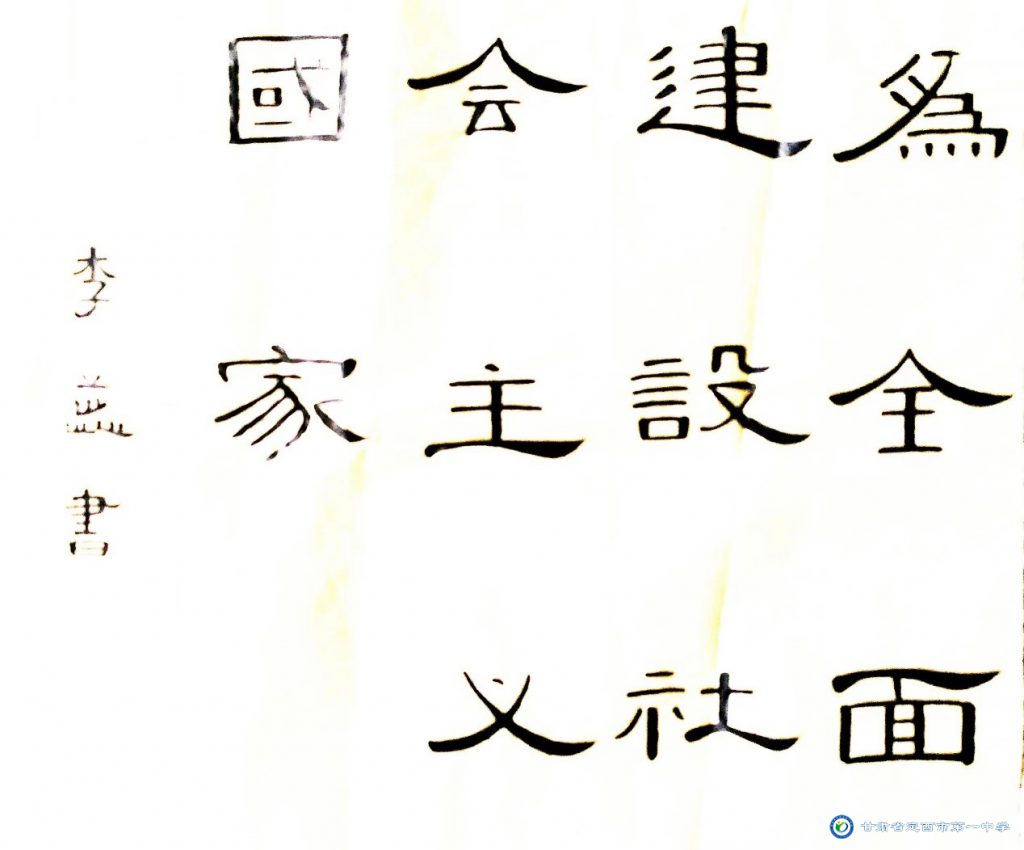 為全面
建設社
会主义
國家
李 書
甘肃省定西市第一中学